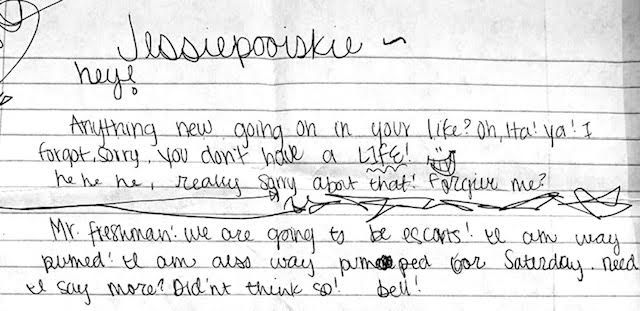 Jessiepooiskie ~
hey!
Anything new going on in your like? Oh, Ha! ya! I
forgot, sorry. you don't have a LIFE!
he he he, really sorry about that! Forgive me?
Mr. freshman! we are going to be escorts! I am way
pumed! I am also way pumped for Saturday. need
I say more? Did'nt think so! bell!